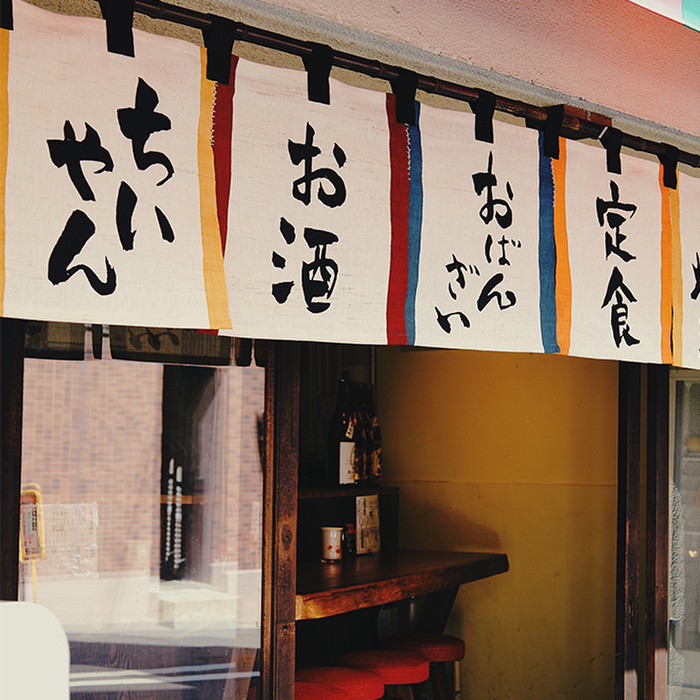 ちい
やん
お酒
おばん
ざい
定食